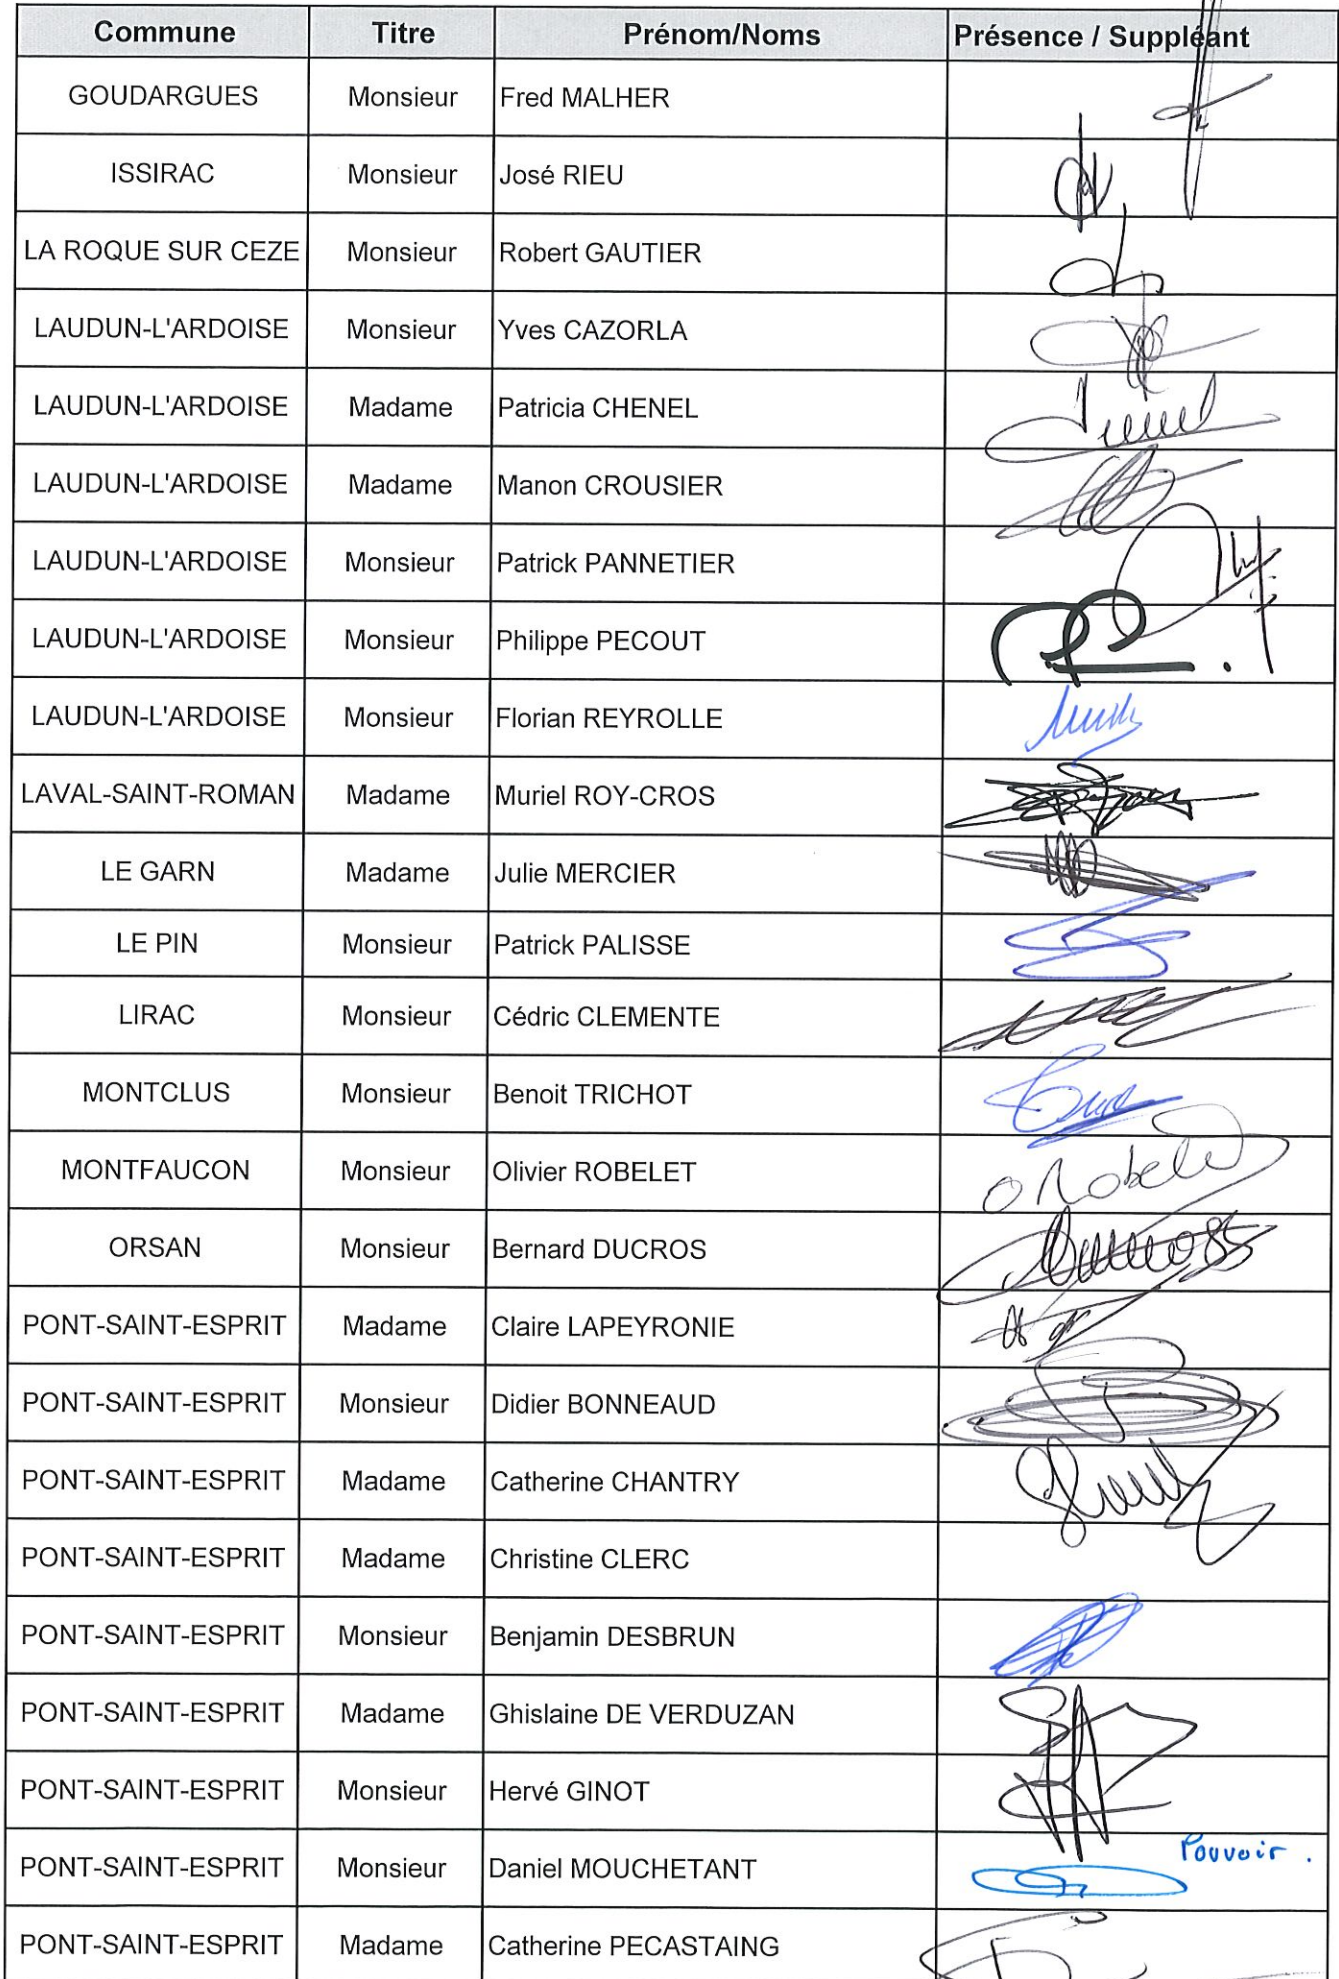 Commune Titre Prénom/Noms Présence / Suppléant
GOUDARGUES Monsieur Fred MALHER
ISSIRAC Monsieur José RIEU
LA ROQUE SUR CEZE Monsieur Robert GAUTIER
LAUDUN-L'ARDOISE Monsieur Yves CAZORLA
LAUDUN-L'ARDOISE Madame Patricia CHENEL
LAUDUN-L'ARDOISE Madame Manon CROUSIER
LAUDUN-L'ARDOISE Monsieur Patrick PANNETIER
LAUDUN-L'ARDOISE Monsieur Philippe PECOUT
LAUDUN-L'ARDOISE Monsieur Florian REYROLLE
LAVAL-SAINT-ROMAN Madame Muriel ROY-CROS
LE GARN Madame Julie MERCIER
LE PIN Monsieur Patrick PALISSE
LIRAC Monsieur Cédric CLEMENTE
MONTCLUS Monsieur Benoit TRICHOT
MONTFAUCON Monsieur Olivier ROBELET O Robelet
ORSAN Monsieur Bernard DUCROS
PONT-SAINT-ESPRIT Madame Claire LAPEYRONIE
PONT-SAINT-ESPRIT Monsieur Didier BONNEAUD
PONT-SAINT-ESPRIT Madame Catherine CHANTRY
PONT-SAINT-ESPRIT Madame Christine CLERC
PONT-SAINT-ESPRIT Monsieur Benjamin DESBRUN
PONT-SAINT-ESPRIT Madame Ghislaine DE VERDUZAN
PONT-SAINT-ESPRIT Monsieur Hervé GINOT
PONT-SAINT-ESPRIT Monsieur Daniel MOUCHETANT Pouvoir.
PONT-SAINT-ESPRIT Madame Catherine PECASTAING